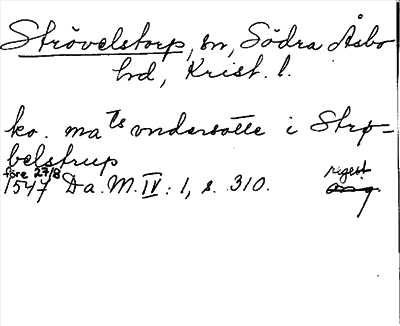 Strövelstorp, sn, Södra Åsbo
hd, Krist. l.
ko. ma ts vndersotte i Strø=
belstrup
före 27/8
1547 Da. M. IV: 1, s. 310.
regest